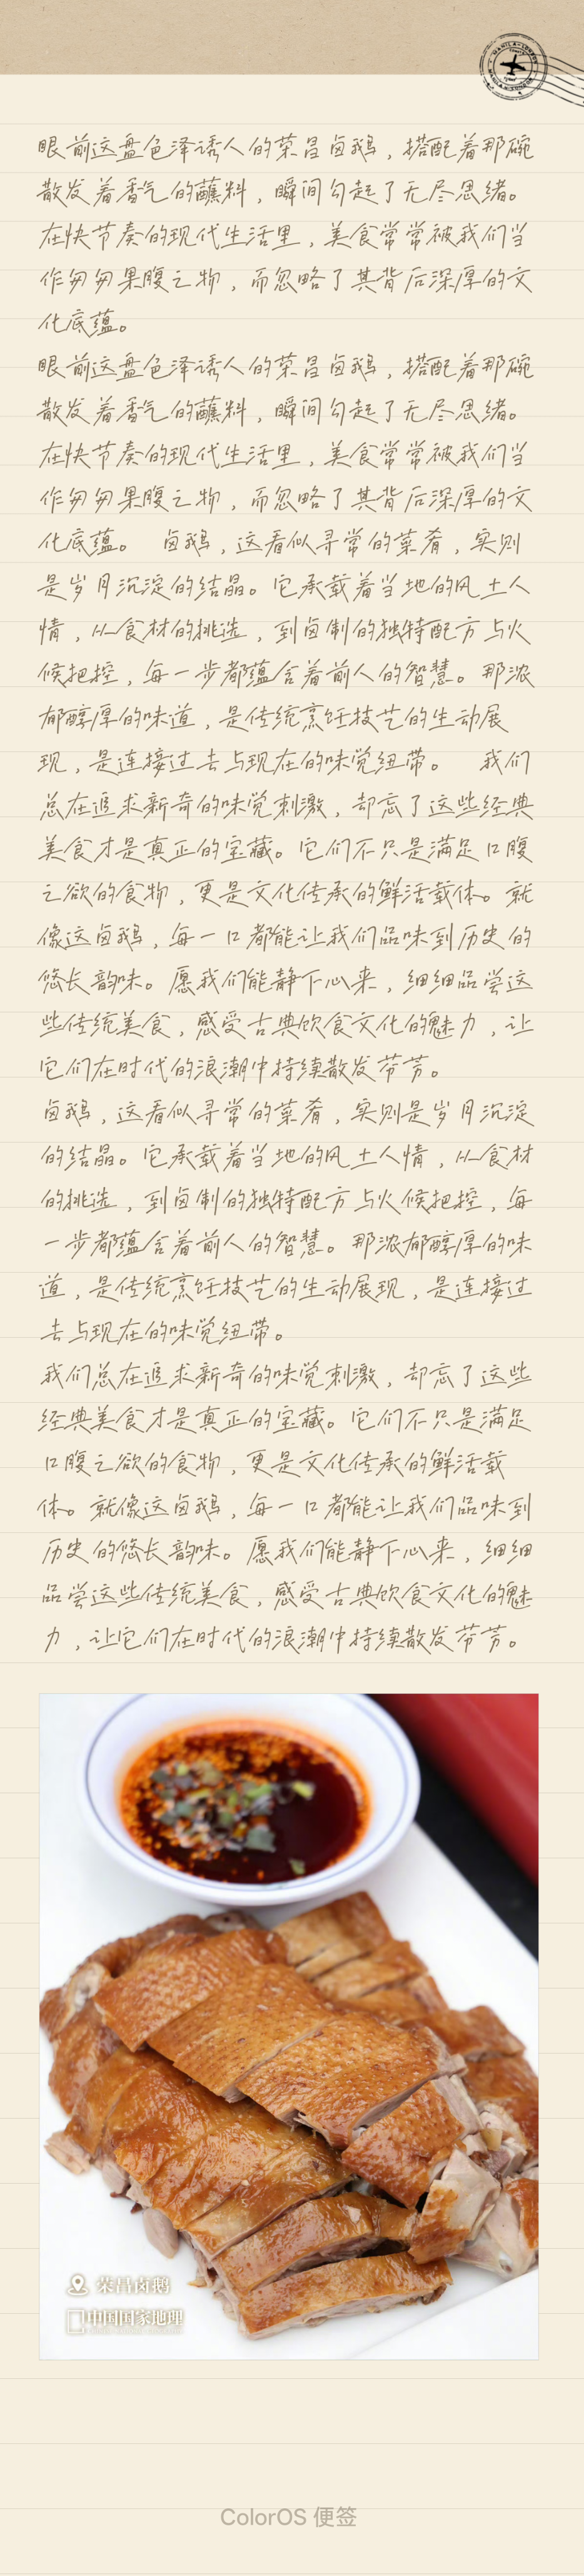 MANILA-LONDON
眼前这盘色泽诱人的荣昌卤鹅，搭配着那碗
散发着香气的蘸料，瞬间勾起了无尽思绪。
在快节奏的现代生活里，美食常常被我们当
作匆匆果腹之物，而忽略了其背后深厚的文
化底蕴。
眼前这盘色泽诱人的荣昌卤鹅，搭配着那碗
散发着香气的蘸料，瞬间勾起了无尽思绪。
在快节奏的现代生活里，美食常常被我们当
作匆匆果腹之物，而忽略了其背后深厚的文
化底蕴。 卤鹅，这看似寻常的菜肴，实则
是岁月沉淀的结晶。它承载着当地的风土人
情，从食材的挑选，到卤制的独特配方与火
候把控，每一步都蕴含着前人的智慧。那浓
郁醇厚的味道，是传统烹饪技艺的生动展
现，是连接过去与现在的味觉纽带。 我们
总在追求新奇的味觉刺激，却忘了这些经典
美食才是真正的宝藏。它们不只是满足口腹
之欲的食物，更是文化传承的鲜活载体。就
像这卤鹅，每一口都能让我们品味到历史的
悠长韵味。愿我们能静下心来，细细品尝这
些传统美食，感受古典饮食文化的魅力，让
它们在时代的浪潮中持续散发芬芳。
卤鹅，这看似寻常的菜肴，实则是岁月沉淀
的结晶。它承载着当地的风土人情，从食材
的挑选，到卤制的独特配方与火候把控，每
一步都蕴含着前人的智慧。那浓郁醇厚的味
道，是传统烹饪技艺的生动展现，是连接过
去与现在的味觉纽带。
我们总在追求新奇的味觉刺激，却忘了这些
经典美食才是真正的宝藏。它们不只是满足
口腹之欲的食物，更是文化传承的鲜活载
体。就像这卤鹅，每一口都能让我们品味到
历史的悠长韵味。愿我们能静下心来，细细
品尝这些传统美食，感受古典饮食文化的魅
力，让它们在时代的浪潮中持续散发芬芳。
荣昌卤鹅
中国国家地理
ColorOS 便签